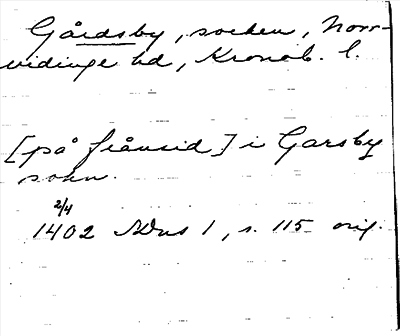 Gårdsby, socken, Norr-
vidinge hd, Kronob. l.
[på frånsid] i Garsby
sokn.
2/4
1402 NDns 1, s. 115 orig.